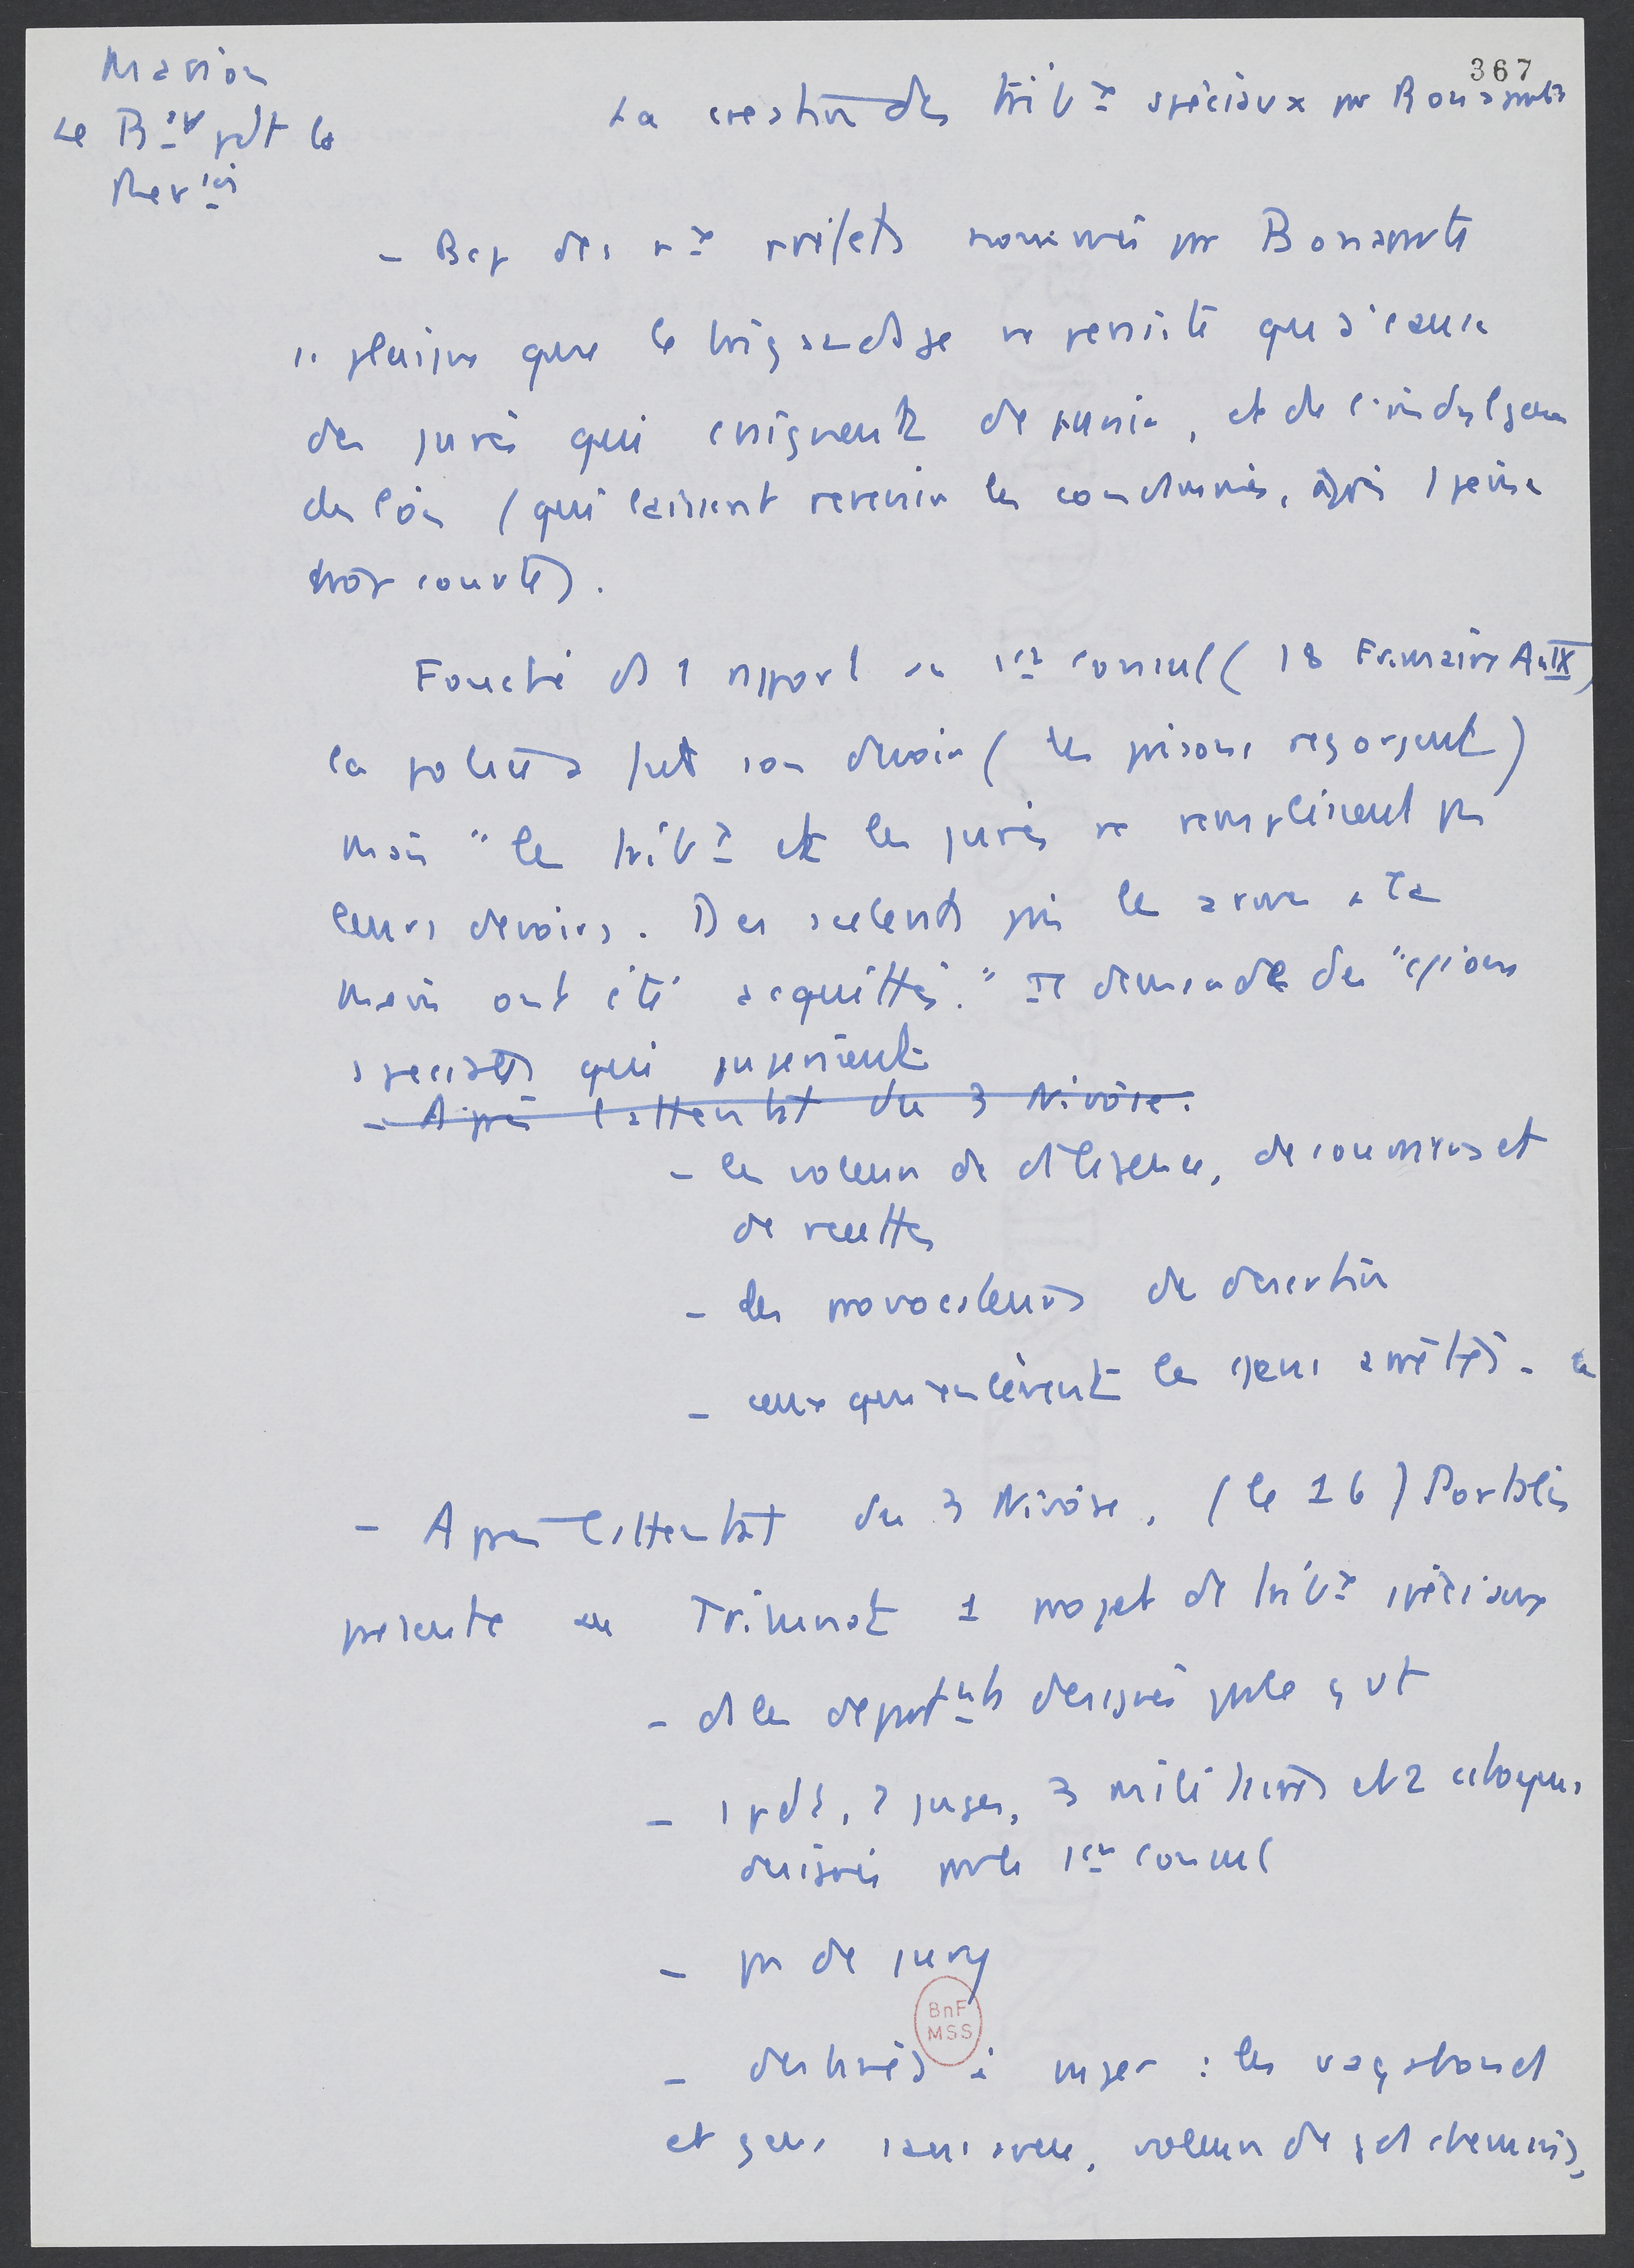 367
Marion
Le B^ge pdt la
Rev^ion
La création des trib^x spéciaux par Bonaparte
- Bcp des n^x préfets nommés par Bonaparte
se plaignent que le brigandage ne persiste qu'à cause
des jurés qui craignent de punir, et de l'indulgence
des lois (qui laissent revenir les condamnés, après 1 peine
trop courte).
Fouché ds 1 rapport au 1er consul (18 Frimaire An IX)
la police a fait son devoir (les prisons regorgent)
mais "les trib^x et les jurés ne remplissent pas
leurs devoirs. Des scélérats pris les armes à la
main ont été acquittés." Il demande des "
spéciaux qui jugeraient
- Après l'attentat du 3 Nivôse.
- les voleurs de diligence, de courriers et
de recettes
- les provocateurs de désertion
- ceux qui enlèvent les gens arrêtés.
- Après l'attentat du 3 Nivôse, (le 16) Portalis
présente au Tribunat 1 projet de trib^x spéciaux
- ds les dépar^ts désignés par le gvt
- 1 pdt, 2 juges, 3 militaires et 2 citoyens
désignés par le 1er consul
- pas de jury
- destinés à juger : les vagabonds
et gens sans aveu, voleurs de gd chemins,
BnF
MSS